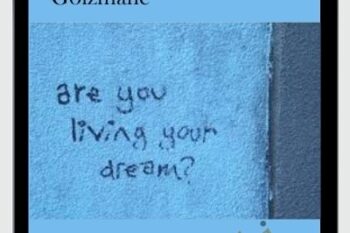 are you
living your
dream?